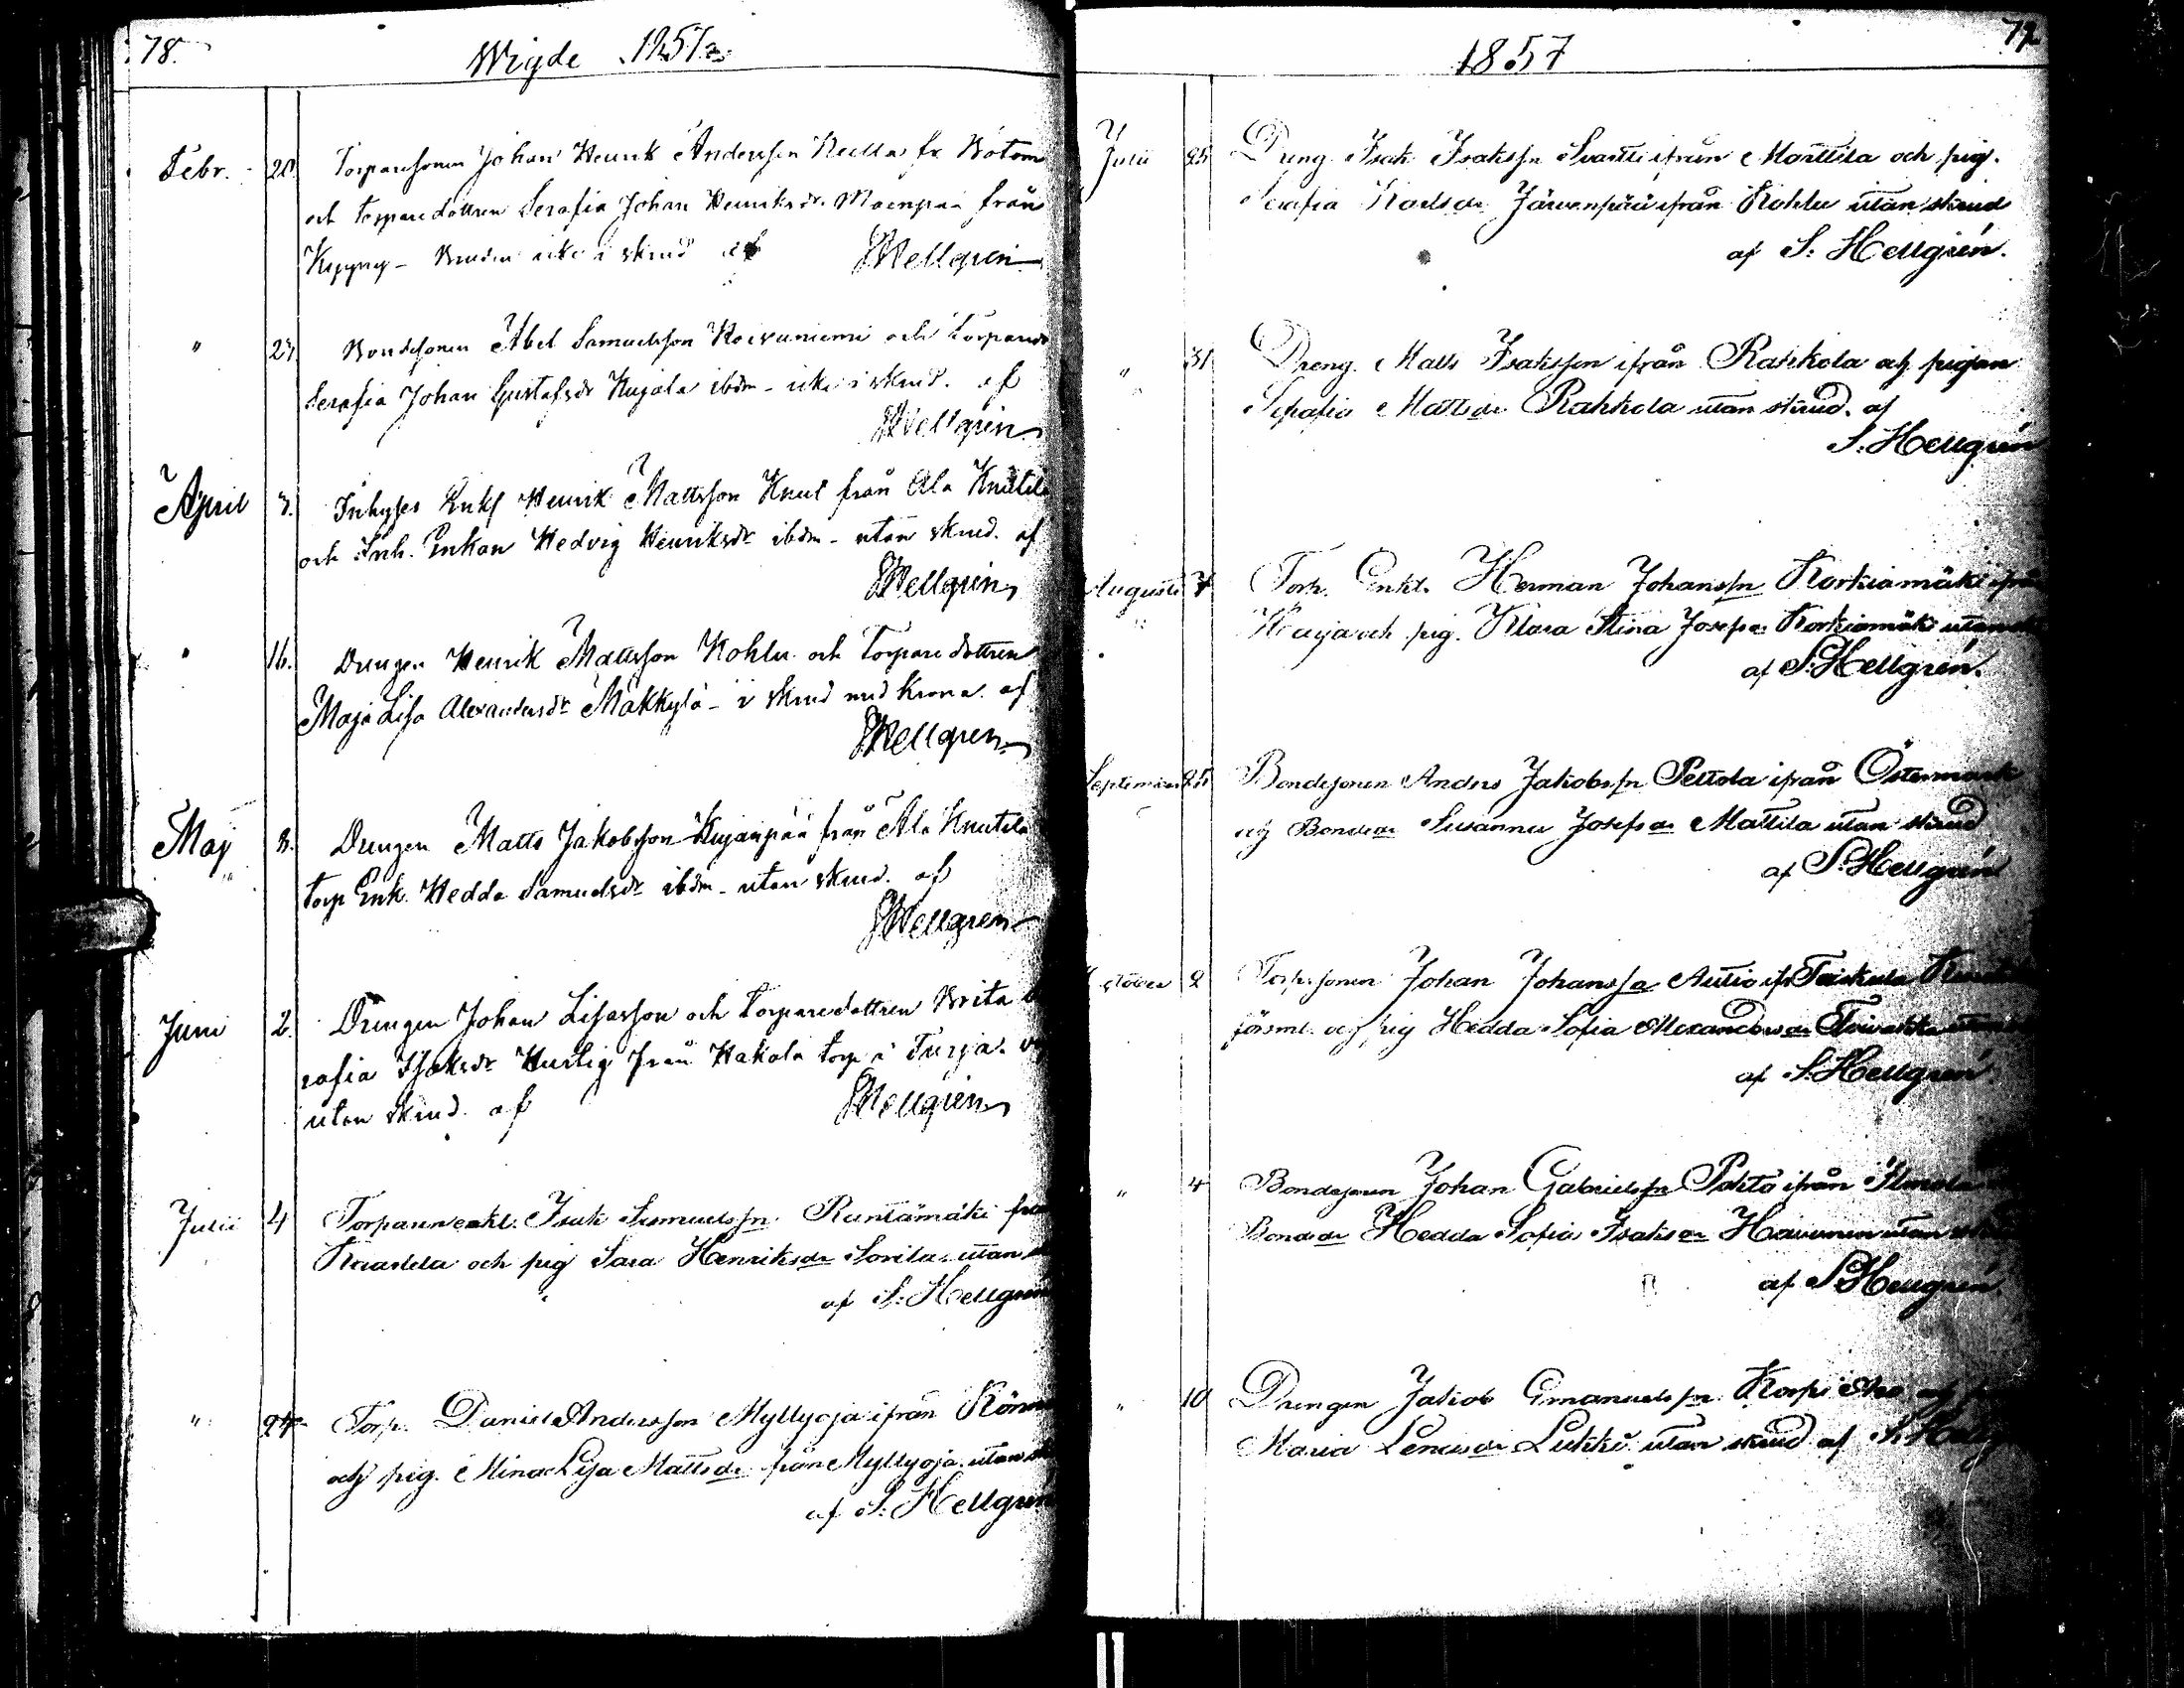 78.
Wigde 1857.
Febr. 20. Torparesonen Johan Henrik Andersson fr Bötom
och torparedottren Serafia Johan Henriksdr. från
Kyyny - Bruden icke i skrud af SHellgren
" 27. Bondesonen Abel Samuelsson Koivuniemi och Torpared
Serafia Johan Gustafsdr Kujala ibdm - icke i skrud. af
SHellgren
April 3. Inhyses Enkl Henrik Mattsson Knut från Ala Knutila
och Inh. Enkan Hedvig Henriksdr ibdm - utan skrud. af
SHellgren
" 16. Drengen Henrik Mattsson Kohlu och Torparedottren
Maja Lisa Alexandersdr Mäkkylä - i skrud med krona. af
SHellgren
Maj 8. Drengen Matts Jakobsson Kujanpää från Ala Knutila
torp Enk. Hedda Samuelsdr ibdm - utan skrud. af
SHellgren
Juni 2. Drengen Johan Lisasson och Torparedottren Brita
sofia Isaksdr Hurtig från Hakola torp i Turja.
utan skrud. af SHellgren
Julii 4 Torparen enkl. Isak Samuelssn. Rantamäki från
och pig Sara Henriksdr Sorila utan
af S: Hellgren
" 24 Torp. Daniel Andersson Myllyoja ifrån
och pig. Mina Lisa Mattsdr från Myllyoja utan
af S: Hellgren
79
1857
Julii 25 Dreng Isak Isakssn Svartti ifrån Marttila och pig.
Serafia Karlsdr Järvenpää ifrån Kohlu utan skrud
af S: Hellgrén.
" 31 Dreng. Matts Isaksson ifrån Rahkola och pigan
Serafia Mattsdr Rahkola utan skrud. af
S: Hellgrén
Augusti 7 Torp. Enkl. Herman Johanssn Korkiamäki ifrån
och pig. Klara Stina Josefsdr Korkiamäki utan
af S: Hellgrén.
September 25 Bondesonen Anders Jakobssn Peltola ifrån Östermark
och Bondedr Susanna Josefsdr Mattila utan skrud
af S: Hellgrén
October 2 Torp.sonen Johan Johanssn Autio ifr
och pig Hedda Sofia Alexandersdr
af S: Hellgrén
" 4 Bondesonen Johan Gabrielssn ifrån Ilmola
Bondedr Hedda Sofia Isaksdr utan
af S Hellgrén.
" 10 Drengen Jakob Emanuelssn Korpi
Maria Lukki utan skrud af